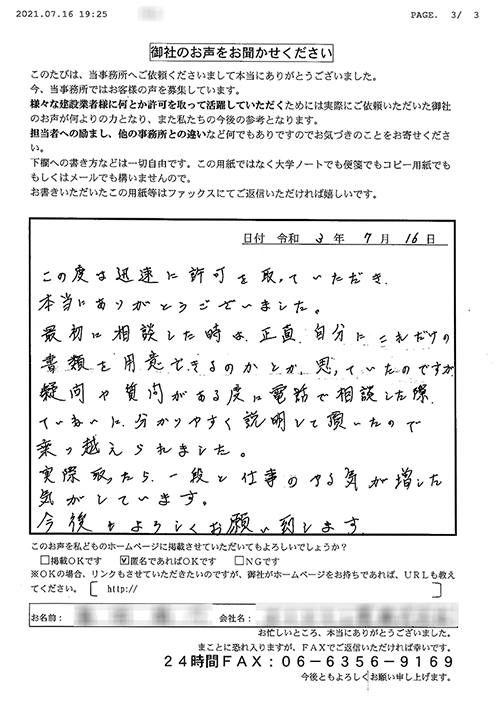 2021.07.16 19:25
PAGE. 3/ 3
御社のお声をお聞かせください
このたびは、当事務所へご依頼くださいまして本当にありがとうございました。
今、当事務所ではお客様の声を募集しています。
様々な建設業者様に何とか許可を取って活躍していただくためには実際にご依頼いただいた御社
のお声が何よりの力となり、また私たちの今後の参考となります。
担当者への励まし、他の事務所との違いなど何でもありですのでお気づきのことをお寄せくださ
い。
下欄への書き方などは一切自由です。この用紙ではなく大学ノートでも便箋でもコピー用紙でも
もしくはメールでも構いませんので。
お書きいただいたこの用紙等はファックスにてご返信いただければ嬉しいです。
日付 令和 3 年 7 月 16 日
この度は迅速に許可を取っていただき、
本当にありがとうございました。
最初に相談した時は、正直、自分にこれだけの
書類を用意できるのかとか、思っていたのですが
疑問や質問がある度に電話で相談した際、
ていねいに、分かりやすく説明して頂いたので
乗り越えられました。
実際取ったら、一段と仕事のやる気が増した
気がしています。
今後もよろしくお願い致します。
このお声を私どものホームページに掲載させていただいてもよろしいでしょうか?
□掲載OKです ☑匿名であればOKです □NGです
※OKの場合、リンクもさせていただきたいのですが、御社がホームページをお持ちであれば、URLも教え
てください。〔 http:// 〕
お名前: 会社名:
お忙しいところ、本当にありがとうございました。
まことに恐れ入りますが、FAXでご返信いただければ幸いです。
24時間FAX:06-6356-9169
今後ともよろしくお願い申し上げます。